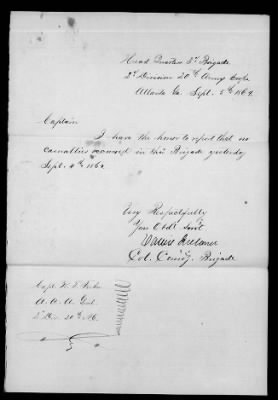 Head Quarters 3d Brigade
2d Division 20th Army Corps
Atlanta Ga. Sept. 5th 1864.
Captain
I have the honor to report that no
casualties occurred in this Brigade yesterday
Sept. 4th 1864
Very Respectfully
Your Obdt Servt
Col. Comdg. Brigade
Capt. W. T.
A. A. A. Genl
2d Div. 20th A.C.